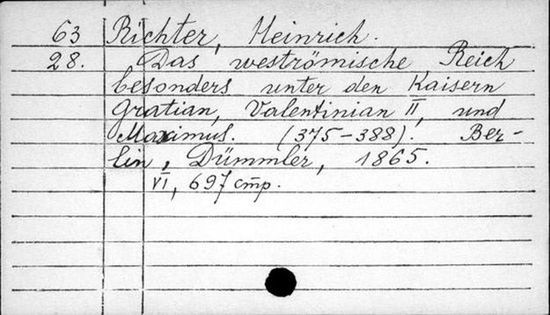 63 Richter, Heinrich.
28. Das weströmische Reich
besonders unter den Kaisern
Gratian, Valentinian II, und
Maximus. (375-388). Ber-
lin, Dümmler, 1865.
VI, 697 cmp.